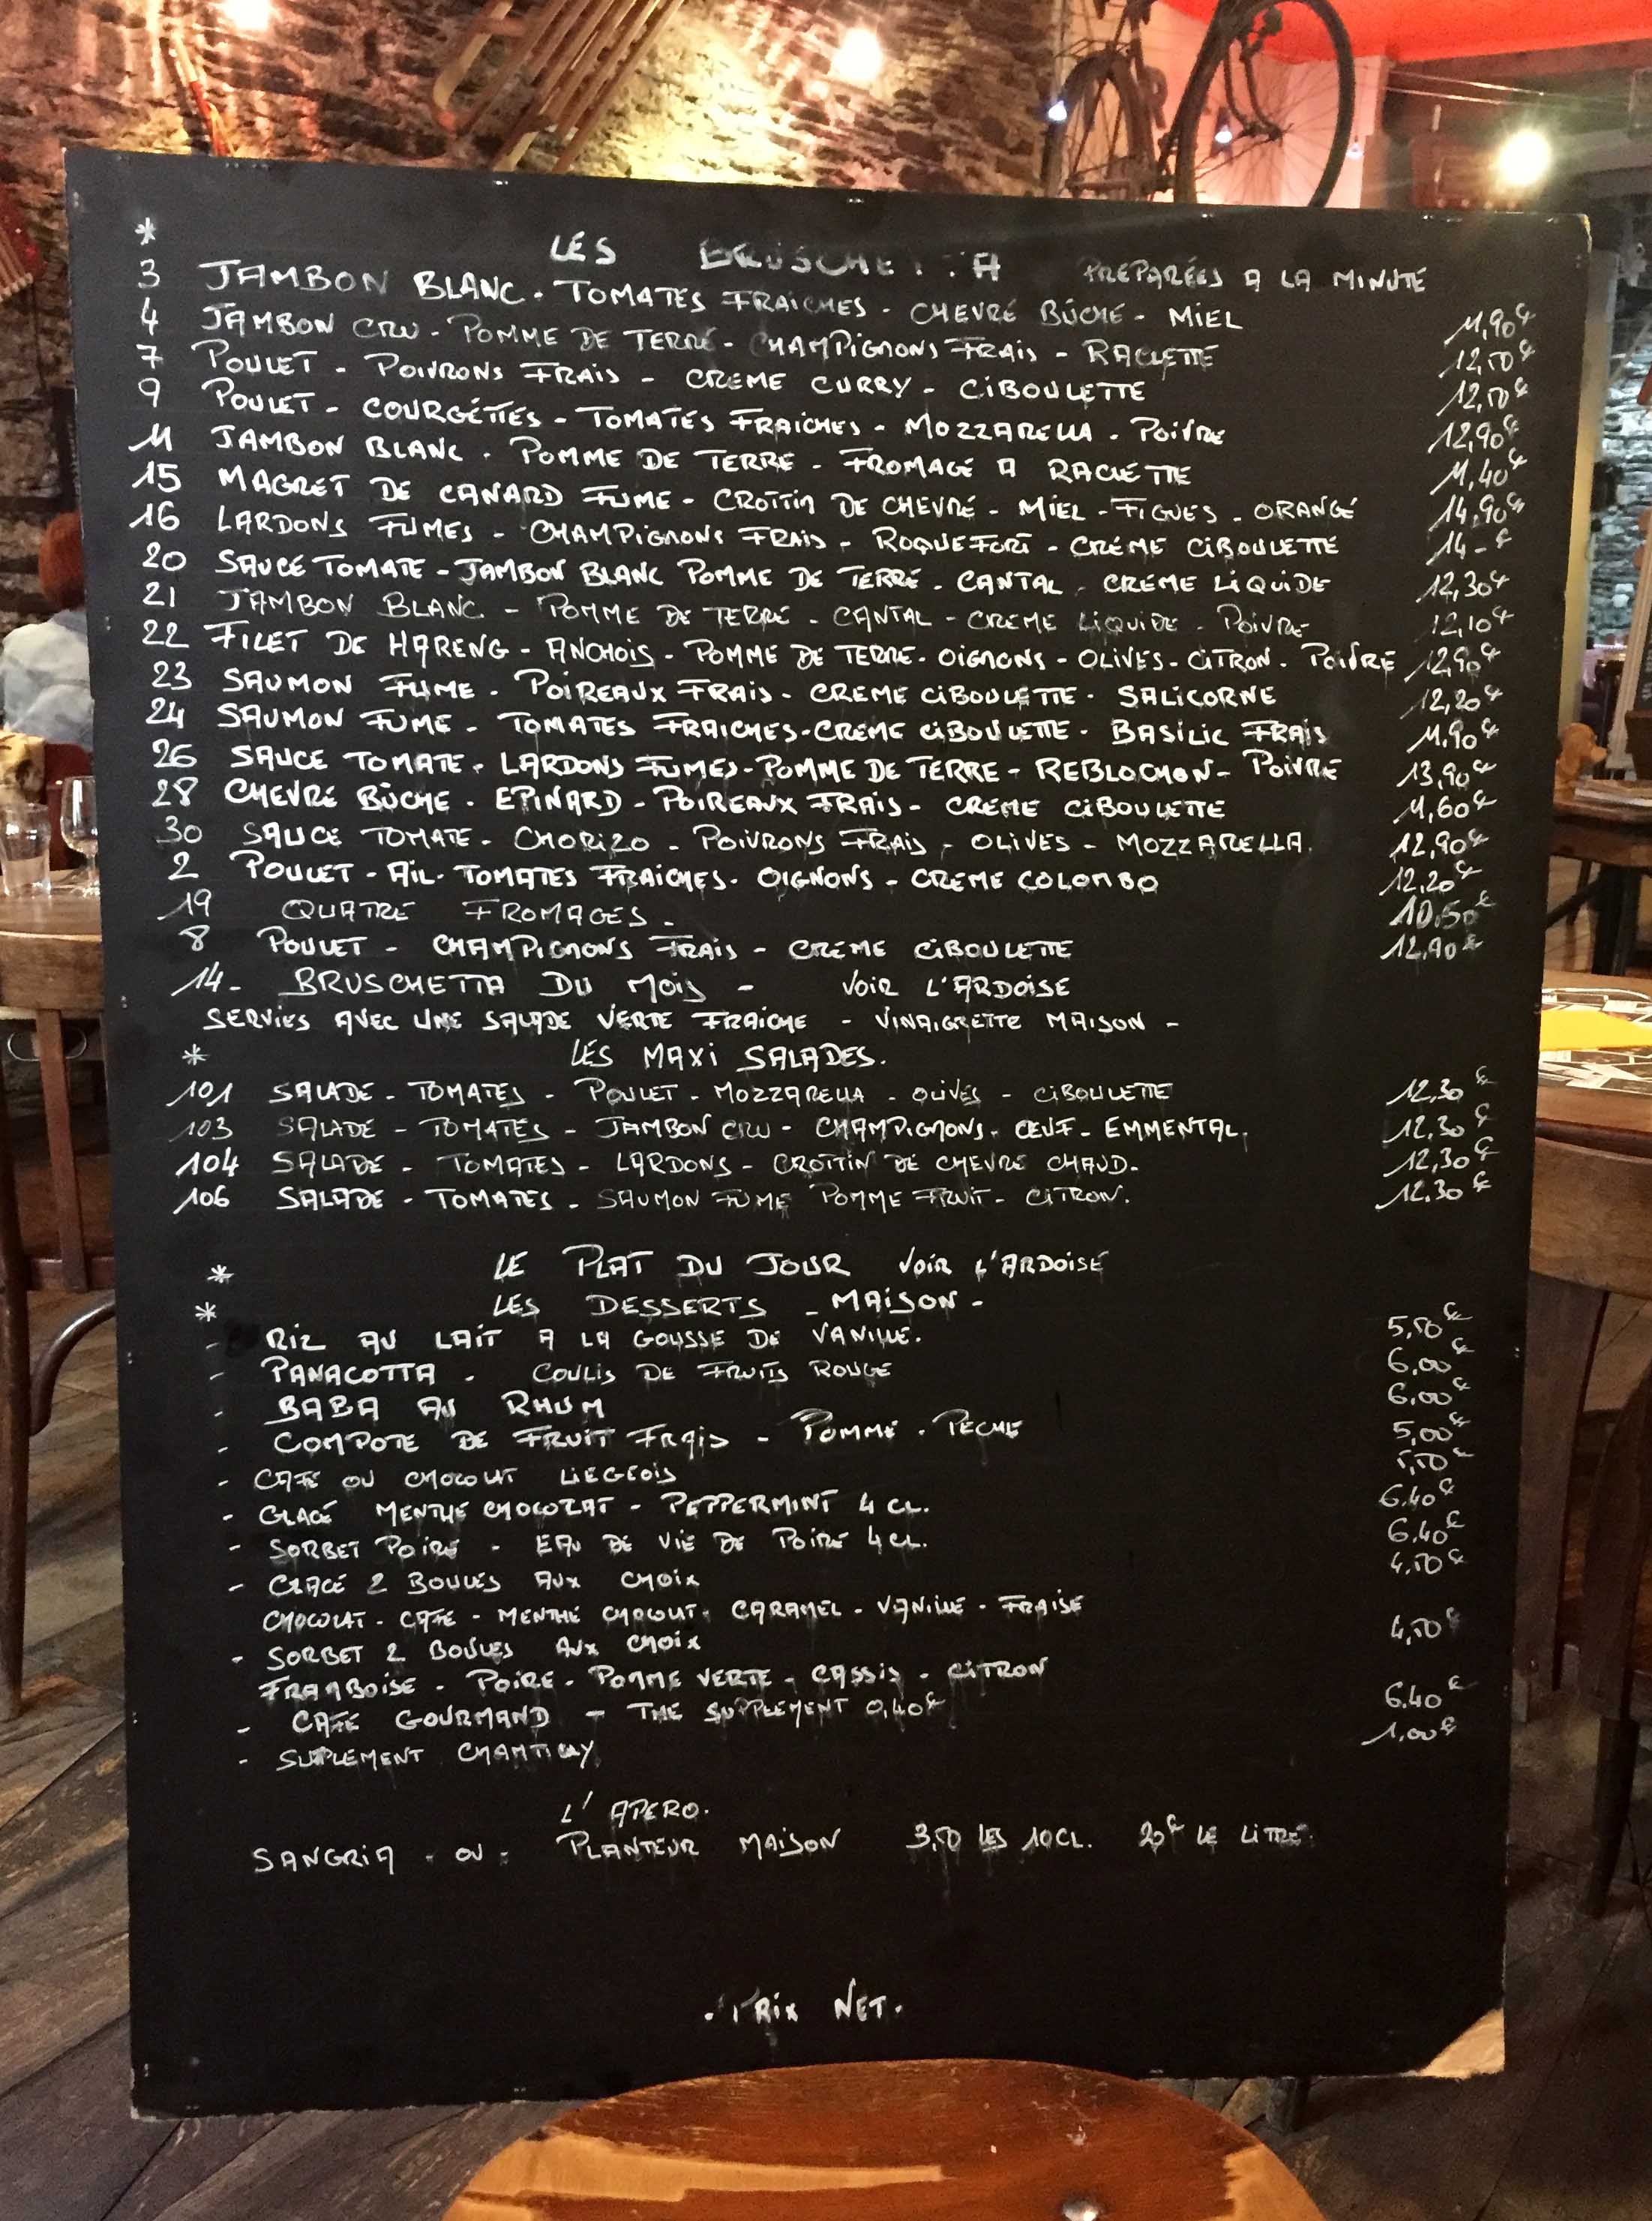 * LES BRUSCHETTA PREPARÉES A LA MINUTE
3 JAMBON BLANC - TOMATES FRAICHES - CHEVRE BÛCHE - MIEL 11,90€
4 JAMBON CRU - POMME DE TERRE - CHAMPIGNONS FRAIS - RACLETTE 12,50€
7 POULET - POIVRONS FRAIS - CREME CURRY - CIBOULETTE 12,50€
9 POULET - COURGETTES - TOMATES FRAICHES - MOZZARELLA - POIVRE 12,90€
11 JAMBON BLANC - POMME DE TERRE - FROMAGE A RACLETTE 11,40€
15 MAGRET DE CANARD FUME - CROTTIN DE CHEVRE - MIEL - FIGUES - ORANGE 14,90€
16 LARDONS FUMES - CHAMPIGNONS FRAIS - ROQUEFORT - CRÉME CIBOULETTE 14-€
20 SAUCE TOMATE - JAMBON BLANC POMME DE TERRE - CANTAL - CREME LIQUIDE 12,30€
21 JAMBON BLANC - POMME DE TERRE - CANTAL - CREME LIQUIDE - POIVRE 12,10€
22 FILET DE HARENG - ANCHOIS - POMME DE TERRE - OIGNONS - OLIVES - CITRON - POIVRE 12,90€
23 SAUMON FUME - POIREAUX FRAIS - CREME CIBOULETTE - SALICORNE 12,20€
24 SAUMON FUME - TOMATES FRAICHES - CREME CIBOULETTE - BASILIC FRAIS 11,90€
26 SAUCE TOMATE - LARDONS FUMES - POMME DE TERRE - REBLOCHON - POIVRE 13,90€
28 CHEVRE BÛCHE - EPINARD - POIREAUX FRAIS - CREME CIBOULETTE 11,60€
30 SAUCE TOMATE - CHORIZO - POIVRONS FRAIS - OLIVES - MOZZARELLA. 12,90€
2 POULET - AIL - TOMATES FRAICHES - OIGNONS - CREME COLOMBO 12,20€
19 QUATRE FROMAGES - 10,50€
8 POULET - CHAMPIGNONS FRAIS - CREME CIBOULETTE 12,90€
14 - BRUSCHETTA DU MOIS - VOIR L'ARDOISE
SERVIES AVEC UNE SALADE VERTE FRAICHE - VINAIGRETTE MAISON -
* LES MAXI SALADES.
101 SALADE - TOMATES - POULET - MOZZARELLA - OLIVES - CIBOULETTE 12,30€
103 SALADE - TOMATES - JAMBON CRU - CHAMPIGNONS - OEUF - EMMENTAL. 12,30€
104 SALADE - TOMATES - LARDONS - CROTTIN DE CHEVRE CHAUD. 12,30€
106 SALADE - TOMATES - SAUMON FUME POMME FRUIT - CITRON. 12,30€
* LE PLAT DU JOUR VOIR L'ARDOISE
* LES DESSERTS - MAISON -
- RIZ AU LAIT A LA GOUSSE DE VANILLE. 5,50€
- PANACOTTA - COULIS DE FRUITS ROUGE 6,00€
- BABA AU RHUM 6,00€
- COMPOTE DE FRUIT FRAIS - POMME - PECHE 5,00€
- CAFE OU CHOCOLAT LIEGEOIS 5,50€
- GLACE MENTHE CHOCOLAT - PEPPERMINT 4 CL. 6,40€
- SORBET POIRE - EAU DE VIE DE POIRE 4 CL. 6,40€
- GLACE 2 BOULES AUX CHOIX 4,50€
CHOCOLAT - CAFE - MENTHE CHOCOLAT - CARAMEL - VANILLE - FRAISE
- SORBET 2 BOULES AUX CHOIX 4,50€
FRAMBOISE - POIRE - POMME VERTE - CASSIS - CITRON
- CAFÉ GOURMAND - THE SUPPLEMENT 0,40€ 6,40€
- SUPLEMENT CHANTILLY 1,00€
L'APERO.
SANGRIA - OU - PLANTEUR MAISON 3,50 LES 10CL. 20€ LE LITRE
- PRIX NET.